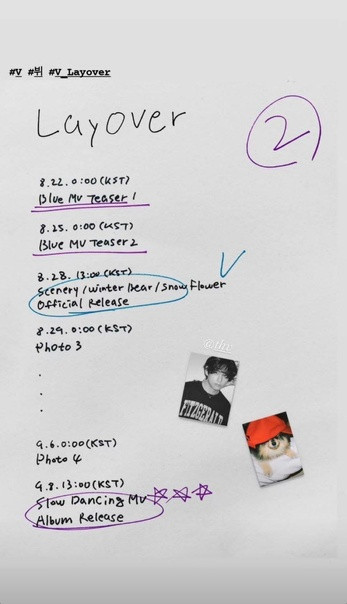 #V #뷔 #V_Layover
Layover
2
8.22. 0:00 (KST)
Blue MV Teaser 1
8.25. 0:00 (KST)
Blue MV Teaser 2
8.28. 13:00 (KST)
Scenery / Winter Bear / Snow Flower
Official Release
8.29. 0:00 (KST)
Photo 3
.
.
.
@thv
FITZGERALD
9.6. 0:00 (KST)
Photo 4
9.8. 13:00 (KST)
Slow Dancing MV
Album Release